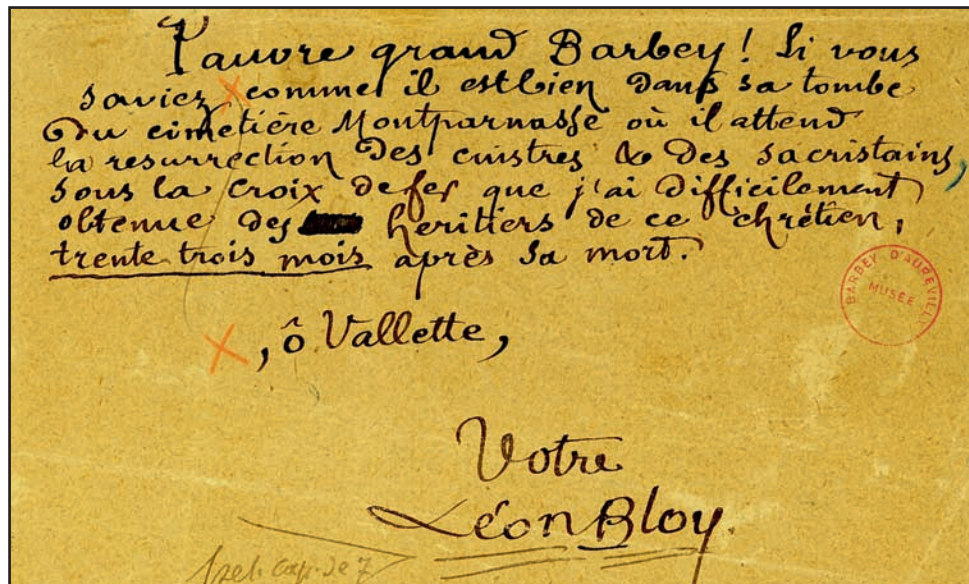 Pauvre grand Barbey ! Si vous
saviez comme il est bien dans sa tombe
du cimetière Montparnasse où il attend
la resurrection des cuistres & des sacristains,
sous la croix de fer que j'ai difficilement
obtenue des heritiers de ce chrétien,
trente trois mois après sa mort.
BARBEY D'AUREVILLY
MUSÉE
X, ô Vallette,
Votre
Léon Bloy.